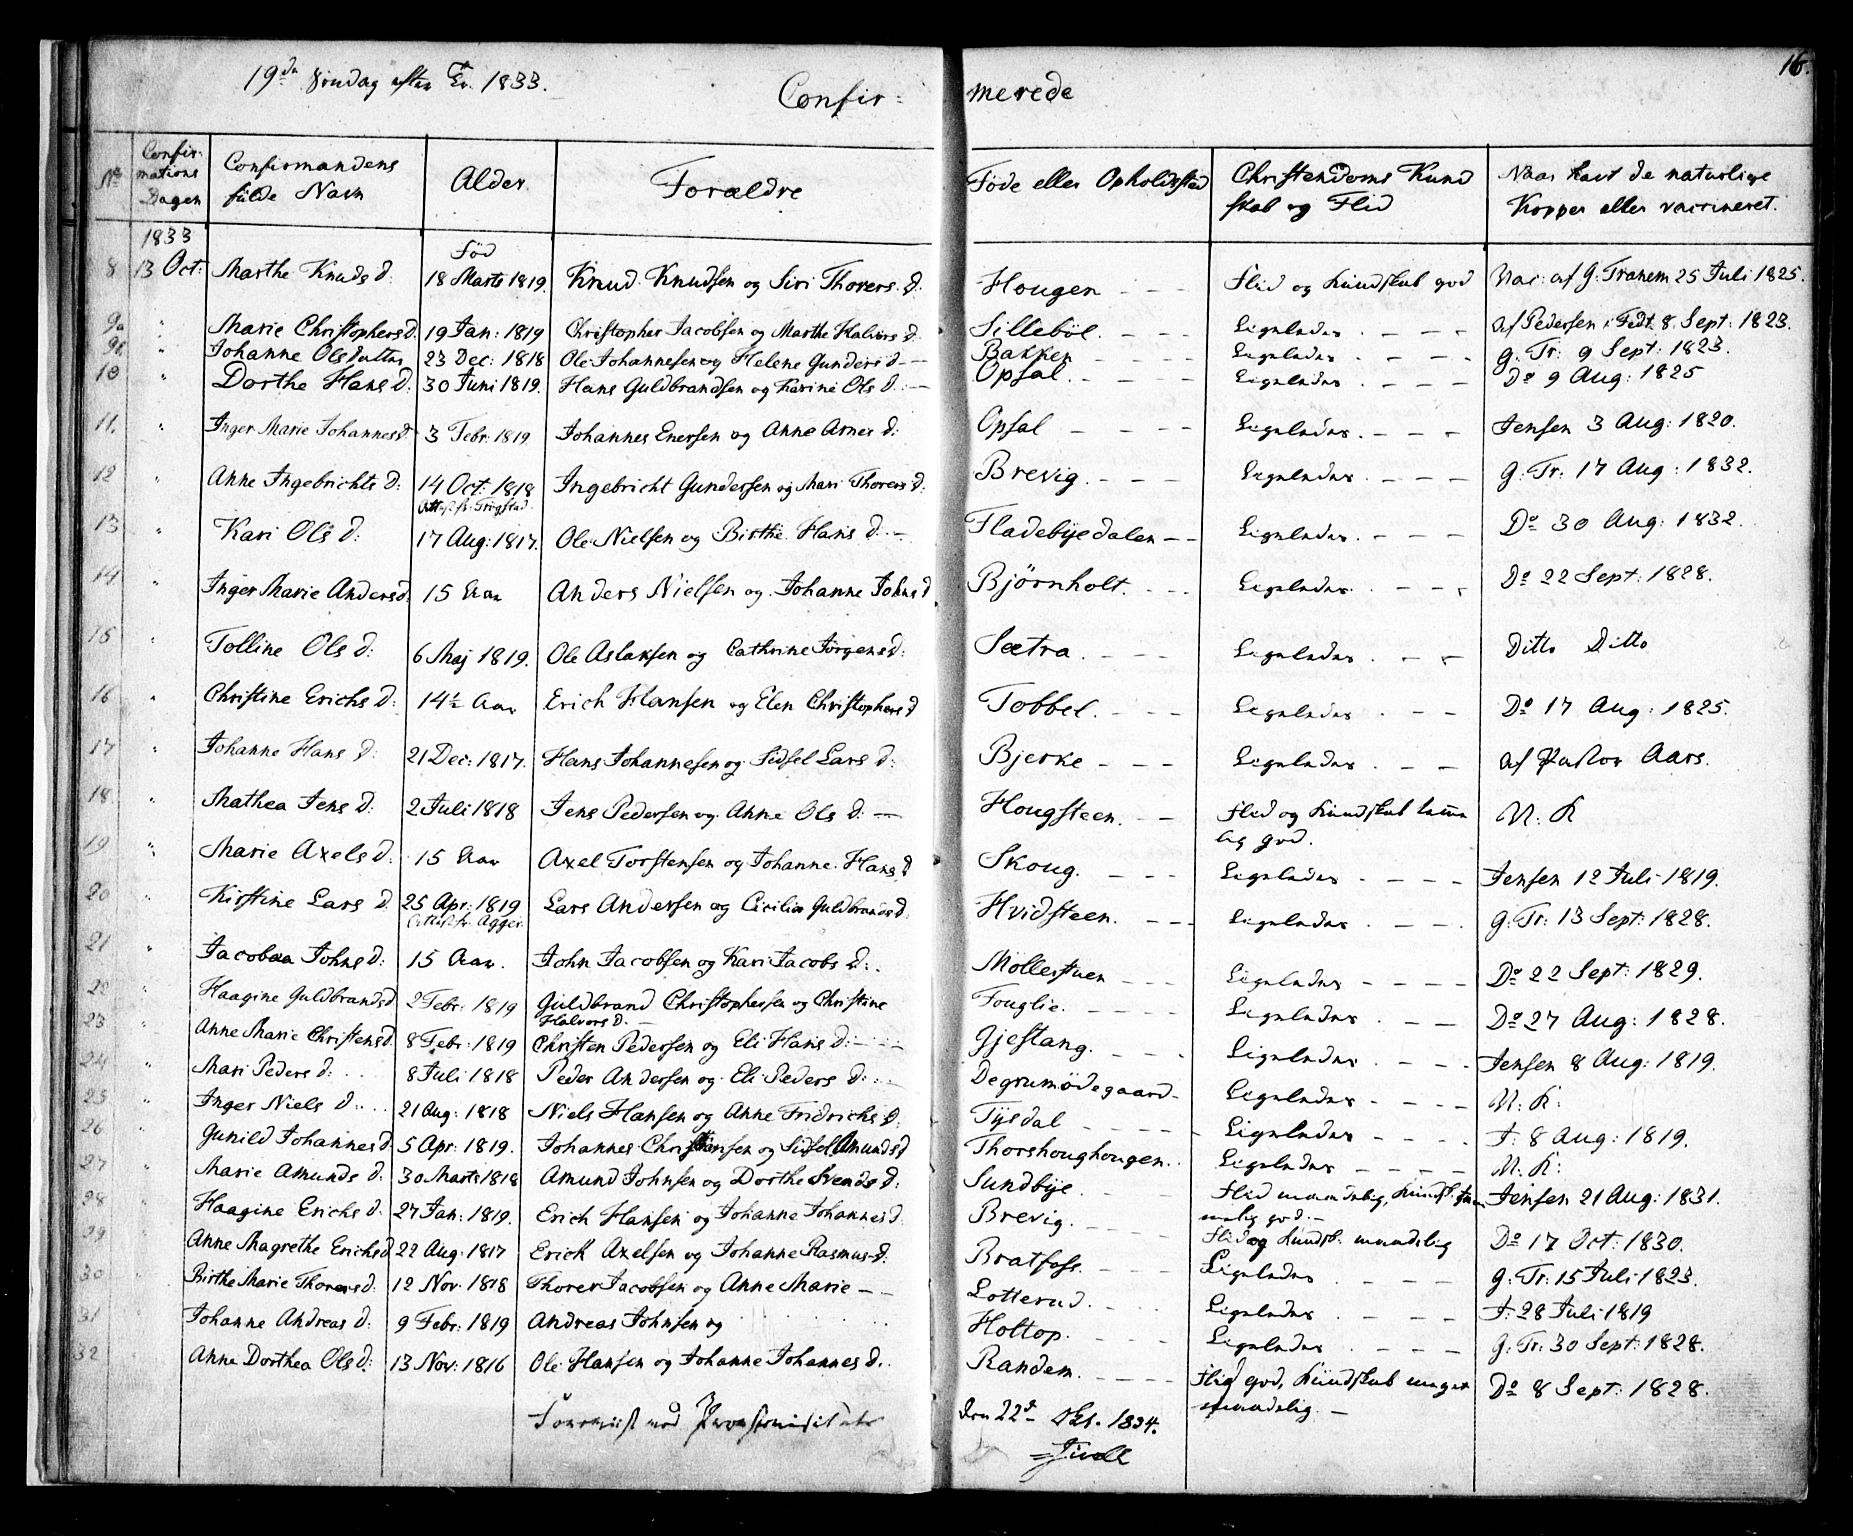 19de Søndag efter Tr. 1833.
Confir=merede
16.
No Confir-mations Dagen | Confirmandens fulde Navn | Alder. | Forældre | Føde eller Opholdssted | Christendoms Kundskab og Flid | Naar havt de naturlige Kopper eller vaccineret.
1833 Fød
8 13 Oct: Marthe Knuds d: 18 Marts 1819. Knud Knudsen og Siri Thorers d: Hougen - - - Flid og Kundskab god Vac: af G. Tranem 25 Juli 1825.
9a " Marie Christophersd 19 Jan: 1819 Christopher Jacobsen og Marthe Halvors d: Sillebøl. - - - Ligeledes. - - - af Pedersen i Fedt. 8. Sept: 1823.
9b " Johanne Olsdatter 23 Dec: 1818 Ole Johannesen og Helene Gunders d - Bakken - - - Ligeledes - - - g. Tr: 9 Sept: 1823.
10 " Dorthe Hans d: 30 Juni 1819. Hans Guldbrandsen og Karine Ols d: - Opsal. - - - Ligeledes. - - - Do 9 Aug: 1825
11. " Inger Marie Johannesd 3 Febr: 1819 Johannes Enersen og Anne Arnes d: Opsal - - - - Ligeledes. - - - Jensen 3 Aug: 1820.
12 " Anne Ingebrichts d: 14 Oct: 1818 Ingebricht Gundersen og Mari Thorers d. Brevig. - - - Ligeledes - - - G: Tr: 17 Aug: 1832.
Attest fr. Trøgstad.
13 " Kari Ols d: 17 Aug: 1817. Ole Nielsen og Birthe Hans d: - Fladebyedalen - - Ligeledes. - - - Do 30 Aug: 1832.
14 " Inger Marie Andersd: 15 Aar Anders Nielsen og Johanne Johns d Bjørnholt. - - - Ligeledes. - - - Do 22 Sept: 1828.
15 " Tolline Ols d: 6 Maj 1819. Ole Aslaksen og Cathrine Jørgensd: Sætra. - - - Ligeledes. - - Ditto Ditto
16 " Christine Erichs d: 14½ Aar Erich Hansen og Elen Christophers d Tobbel. - - - Ligeledes. - - Do 17 Aug: 1825.
17 " Johanne Hans d: 21 Dec: 1817. Hans Johannesen og Sidsel Lars d: Bjerke - - - Ligeledes - - - af Pastor Aars.
18. " Mathea Jens d. 2 Juli 1818 Jens Pedersen og Anne Ols d: - Hougsteen. - - Flid og Kundskab temmelig god. N: K
19 " Marie Axels d: 15 Aar Axel Torstensen og Johanne Hans d Skoug. - - - Ligeledes - - - Jensen 12 Juli 1819.
20 " Kirstine Lars d. 25 Apr: 1819 Lars Andersen og Cicilia Guldbrandsd: Hvidsteen. - - - Ligeledes. - - - G: Tr: 13 Sept: 1828.
Attest fr. Agger.
21 " Jacobaa Johns d: 15 Aar. John Jacobsen og Kari Jacobs d: Mollestuen - - - Ligeledes - - - - Do 22 Sept: 1829.
22 " Haagine Guldbrandsd 2 Febr: 1819 Guldbrand Christophersen og Christine Halvors d. - Fouglie. - - - - Ligeledes. - - - Do 27 Aug: 1828.
23 " Anne Marie Christensd 8 Febr: 1819 Christen Pedersen og Eli Hans d: - - Gjestang. - - - Ligeledes. - - - Jensen 8 Aug: 1819.
24 " Mari Peders d: 8 Juli 1818 Peder Andersen og Eli Peders d: Degrumødegaard - Ligeledes - - - N: K:
25 " Inger Niels d: 21 Aug: 1818 Niels Hansen og Anne Fridrichs d. Tysdal - - - - Ligeledes - - - J: 8 Aug: 1819.
26 " Gunild Johannesd 5 Apr: 1819. Johannes Christiansen og Sidsel Amunds d Thorshoughougen. Ligeledes - - - - N: K:
27 " Marie Amunds d: 30 Marts 1818 Amund Johnsen og Dorthe Svends d: Sundbye. - - Flid maadelig, Kundsk. temmelig god. - Jensen 21 Aug: 1831.
28 " Haagine Erichs d: 27 Jan: 1819. Erich Hansen og Johanne Johannesd Brevig. - - Flid og Kundsk. maadelig Do 17 Oct: 1830.
29 " Anne Magrethe Erichsd 22 Aug: 1817 Erich Axelsen og Johanne Rasmusd: Bratfoss. - - - Ligeledes - - - G: Tr: 15 Juli 1823.
30 " Birthe Marie Thorersd: 12 Nov: 1818 Thorer Jacobsen og Anne Marie - - Lotterud. - - - Ligeledes - - - J: 28 Juli 1819
31 " Johanne Andreas d: 9 Febr: 1819 Andreas Johnsen og Holtop. - - - - Ligeledes - - - G: Tr: 30 Sept: 1828.
32 Anne Dorthea Olsd: 13 Nov: 1816 Ole Hansen og Johanne Johannes d. Randem. - - - - Flid god, Kundskab meget maadelig. - Do 8 Sept: 1828.
den 22d Oct. 1834.
Juell